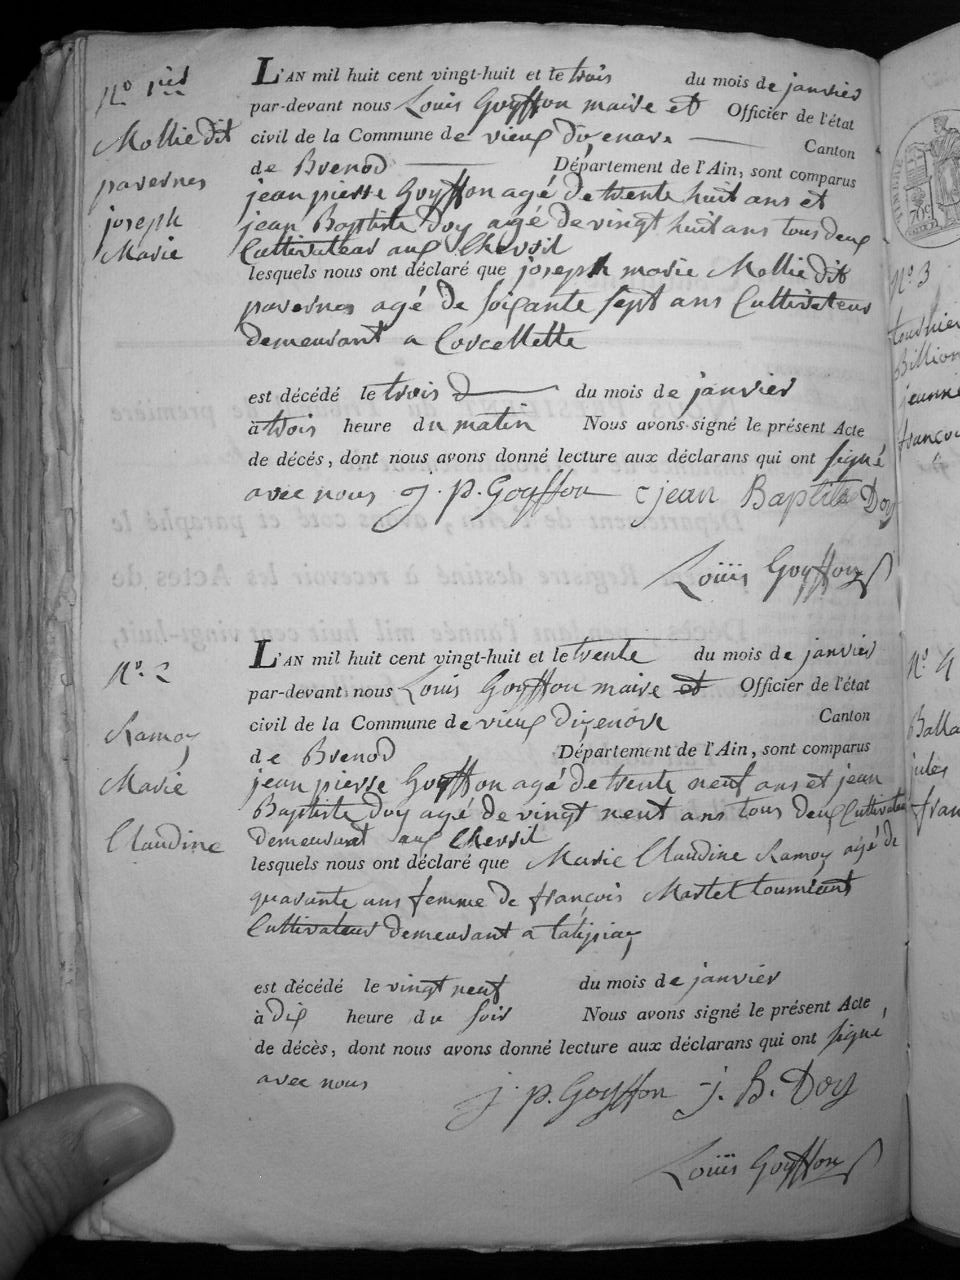 N.º 1.ier
Mollie dit
pavernes
joseph
Marie
L'AN mil huit cent vingt-huit et le trois du mois de janvier
par-devant nous Louis Goyffon maire et Officier de l'état
civil de la Commune de vieux dizenave Canton
de Brenod Département de l'Ain, sont comparus
jean pierre Goyffon agé de trente huit ans et
jean Baptiste Doy agé de vingt huit ans tous deux
Cultivateur aux Chevril
lesquels nous ont déclaré que joseph marie Mollie dit
pavernes agé de soixante sept ans Cultivateur
demeurant a Corcellette
est décédé le trois du mois de janvier
à trois heure du matin Nous avons signé le présent Acte
de décés, dont nous avons donné lecture aux déclarans qui ont signé
avec nous j. p. Goyffon jean Baptiste Doy
Louis Goyffon
N.º 2
Ramoy
Marie
Claudine
L'AN mil huit cent vingt-huit et le trente du mois de janvier
par-devant nous Louis Goyffon maire et Officier de l'état
civil de la Commune de vieux dizenave Canton
de Brenod Département de l'Ain, sont comparus
jean pierre Goyffon agé de trente neuf ans et jean
Baptiste Doy agé de vingt neuf ans tous deux Cultivateur
demeurant aux Chevril
lesquels nous ont déclaré que Marie Claudine Ramoy agé de
quarante ans femme de françois Martel
Cultivateur demeurant a
est décédé le vingt neuf du mois de janvier
à dix heure du soir Nous avons signé le présent Acte
de décès, dont nous avons donné lecture aux déclarans qui ont signé
avec nous j. p. Goyffon j. B. Doy
Louis Goyffon
N.º 3
Billion
jeanne
N.º 4
jules